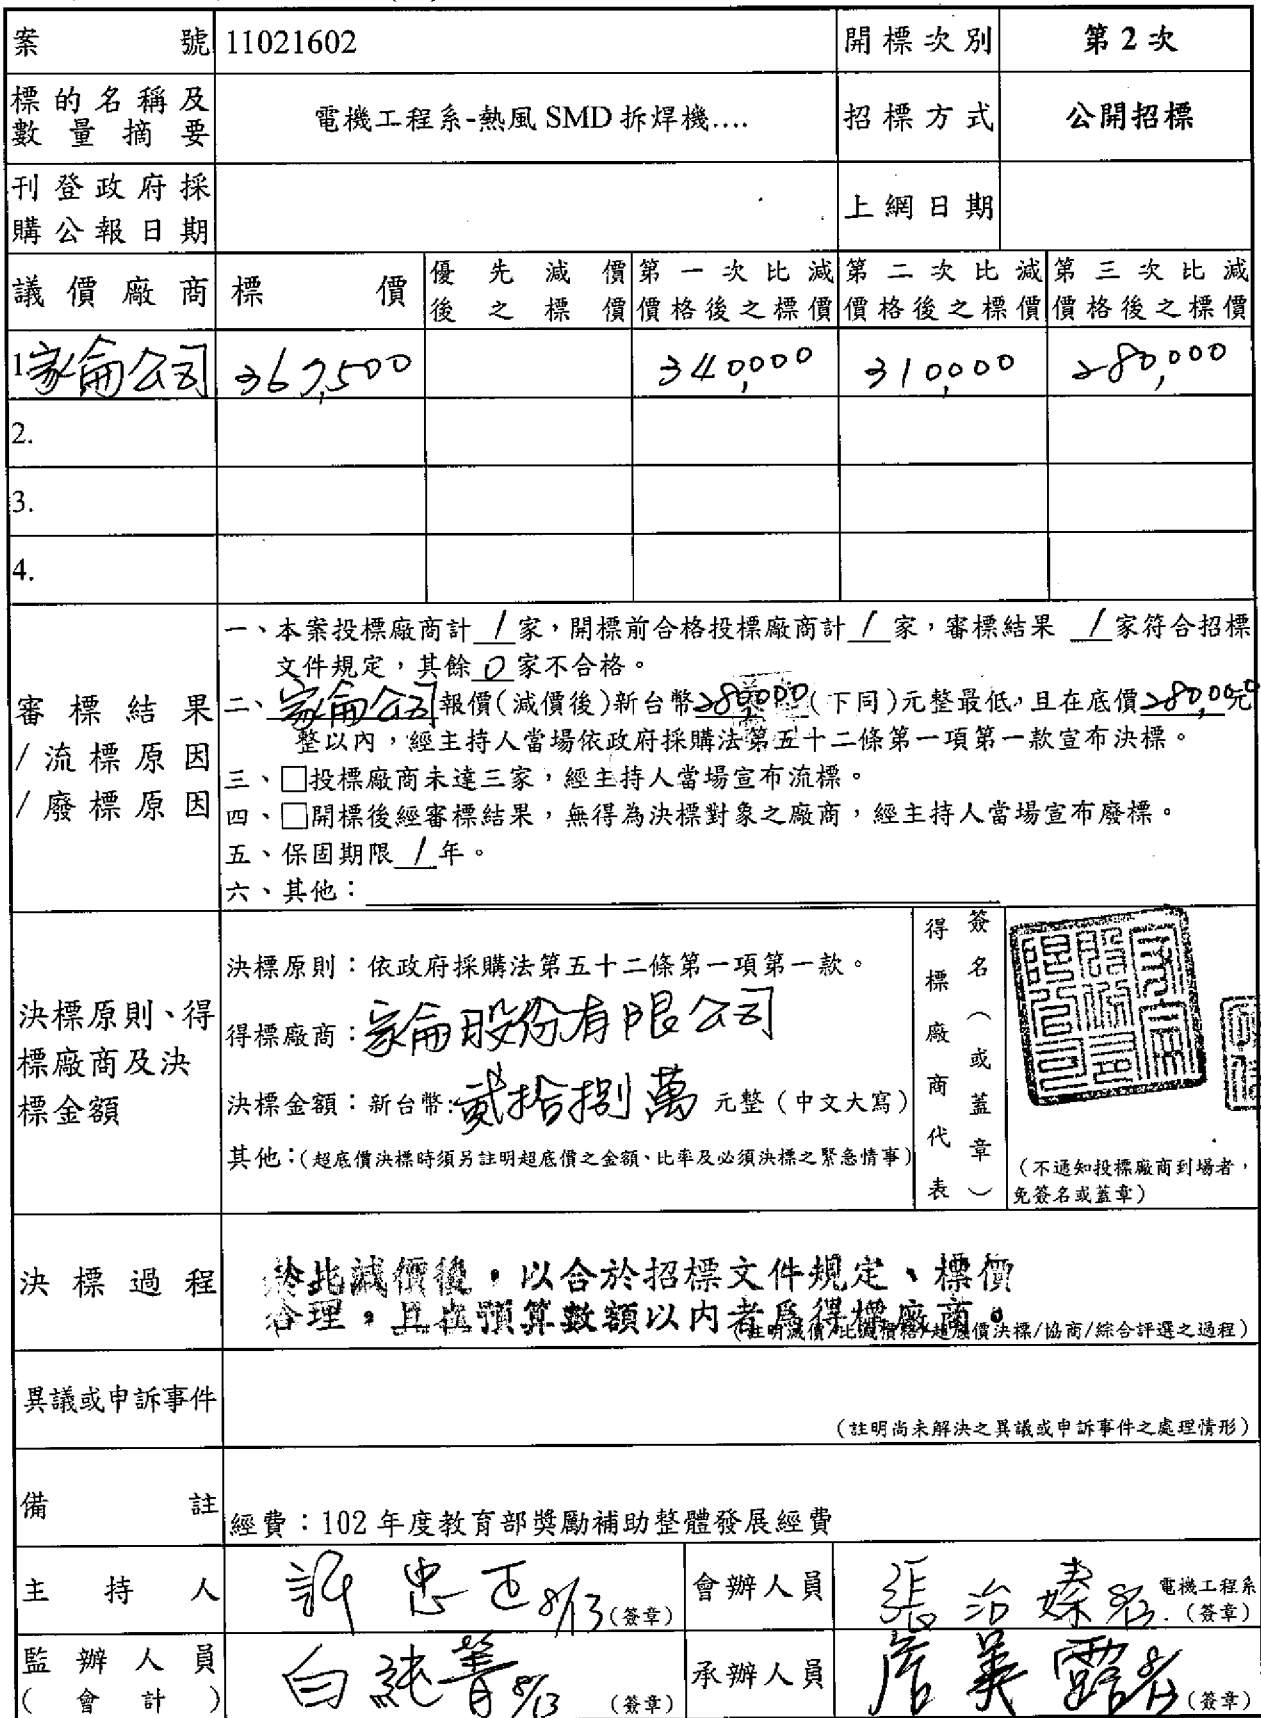 案號 11021602 開標次別 第2次
標的名稱及數量摘要 電機工程系-熱風SMD拆焊機.... 招標方式 公開招標
刊登政府採購公報日期 上網日期
議價廠商 標價 優先減價後之標價 第一次比減價格後之標價 第二次比減價格後之標價 第三次比減價格後之標價
1.家侖公司 367,500 340,000 310,000 280,000
2.
3.
4.
審標結果/流標原因/廢標原因
一、本案投標廠商計 1 家,開標前合格投標廠商計 1 家,審標結果 1 家符合招標
文件規定,其餘 0 家不合格。
二、家侖公司報價(減價後)新台幣280,000(下同)元整最低,且在底價280,000元
整以內,經主持人當場依政府採購法第五十二條第一項第一款宣布決標。
三、□投標廠商未達三家,經主持人當場宣布流標。
四、□開標後經審標結果,無得為決標對象之廠商,經主持人當場宣布廢標。
五、保固期限 1 年。
六、其他:
決標原則、得標廠商及決標金額
決標原則:依政府採購法第五十二條第一項第一款。
得標廠商:家侖股份有限公司
決標金額:新台幣:貳拾捌萬 元整(中文大寫)
其他:(超底價決標時須另註明超底價之金額、比率及必須決標之緊急情事)
得標廠商代表
簽名(或蓋章)
(不通知投標廠商到場者,
免簽名或蓋章)
決標過程
於比減價後,以合於招標文件規定、標價
合理,且在預算數額以內者為得標廠商。
(註明減價/比減價格/超底價決標/協商/綜合評選之過程)
異議或申訴事件
(註明尚未解決之異議或申訴事件之處理情形)
備註 經費:102年度教育部獎勵補助整體發展經費
主持人 許忠正 8/13 (簽章) 會辦人員 張治 8/13. 電機工程系 (簽章)
監辦人員(會計) 白純菁 8/13 (簽章) 承辦人員 詹美露 8/13 (簽章)